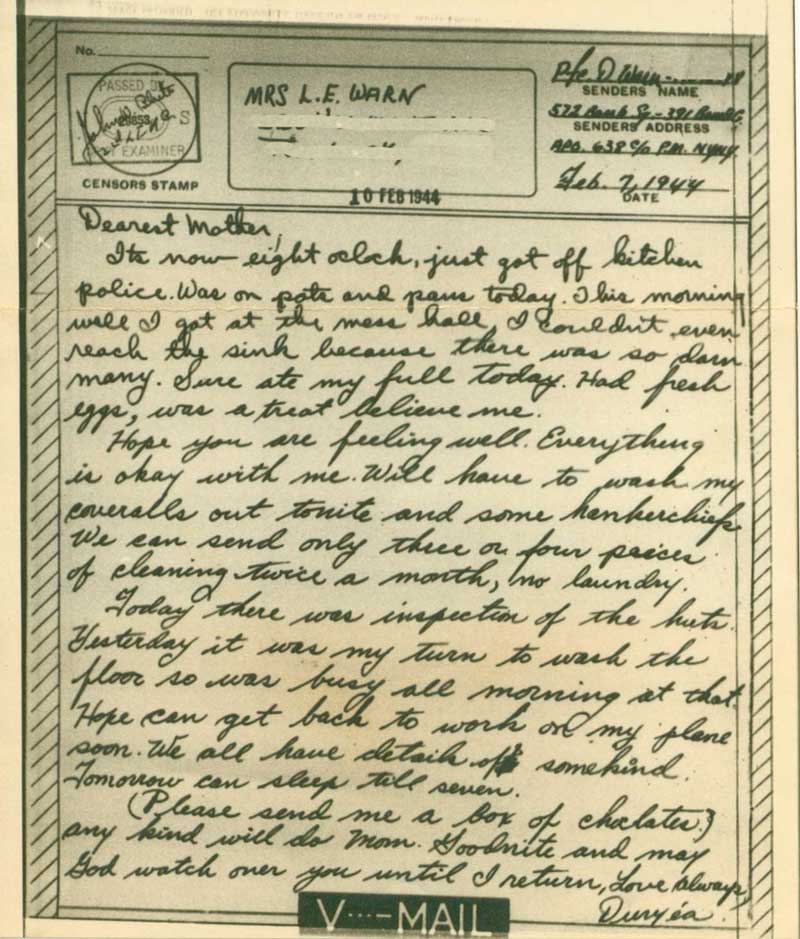 No.
PASSED BY
20853 S
EXAMINER
CENSORS STAMP
MRS L.E. WARN
10 FEB 1944
Pfc D Warn
SENDERS NAME
572 Bomb Sq - 391 Bomb G.
SENDERS ADDRESS
APO. 638 c/o P.M. N.Y.N.Y.
Feb. 7, 1944
DATE
Dearest Mother,
Its now eight oclock, just got off kitchen
police. Was on pots and pans today. This morning
well I got at the mess hall, I couldn't even
reach the sink because there was so darn
many. Sure ate my full today. Had fresh
eggs, was a treat believe me.
Hope you are feeling well. Everything
is okay with me. Will have to wash my
coveralls out tonite and some hankerchiefs.
We can send only three or four peices
of cleaning twice a month, no laundry.
Today there was inspection of the huts.
Yesterday it was my turn to wash the
floor so was busy all morning at that.
Hope can get back to work on my plane
soon. We all have details of somekind.
Tomorrow can sleep till seven.
(Please send me a box of choclates.)
any kind will do Mom. Goodnite and may
God watch over you until I return, Love Always,
Duryéa
V···—MAIL